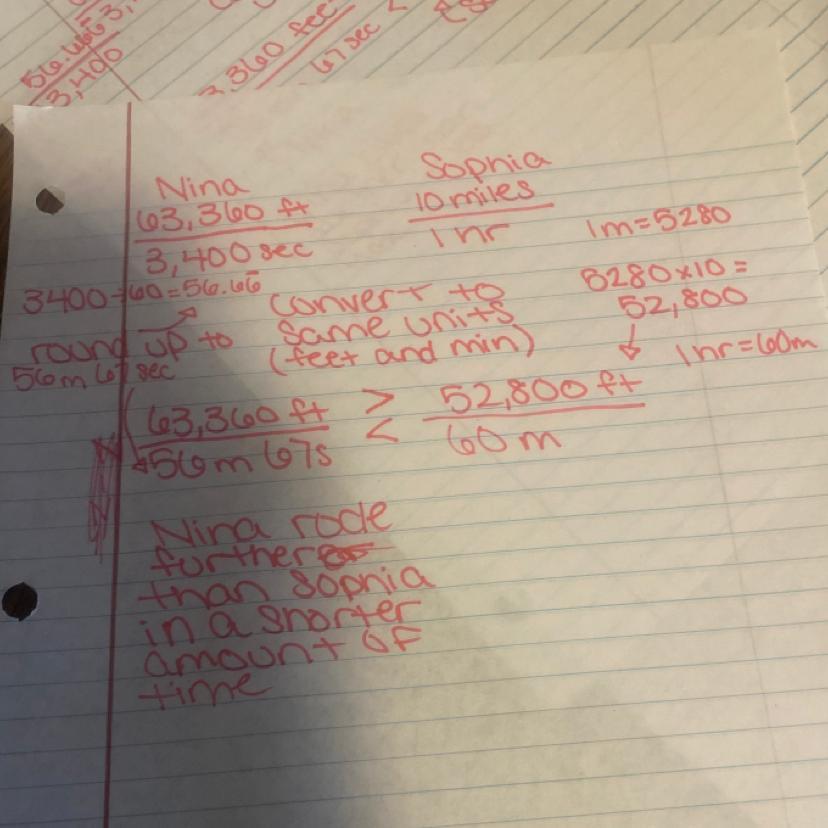 56.6653,
3,400
3,360 feet
67 sec
<
Nina
63,360 ft
3,400 sec
Sophia
10 miles
1 hr
1m=5280
5280×10=
52,800
3400÷60=56.66
round up to
56m 67 sec
convert to
same units
(feet and min)
1hr=60m
63,360 ft
56m 67s
>
<
52,800 ft
60m
Nina rode
further
than Sophia
in a shorter
amount of
time